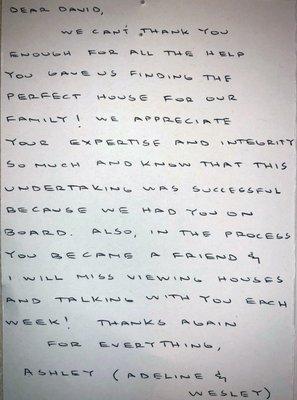 DEAR DAVID,
WE CAN'T THANK YOU
ENOUGH FOR ALL THE HELP
YOU GAVE US FINDING THE
PERFECT HOUSE FOR OUR
FAMILY! WE APPRECIATE
YOUR EXPERTISE AND INTEGRITY
SO MUCH AND KNOW THAT THIS
UNDERTAKING WAS SUCCESSFUL
BECAUSE WE HAD YOU ON
BOARD. ALSO, IN THE PROCESS
YOU BECAME A FRIEND &
I WILL MISS VIEWING HOUSES
AND TALKING WITH YOU EACH
WEEK! THANKS AGAIN
FOR EVERYTHING,
ASHLEY (ADELINE &
WESLEY)